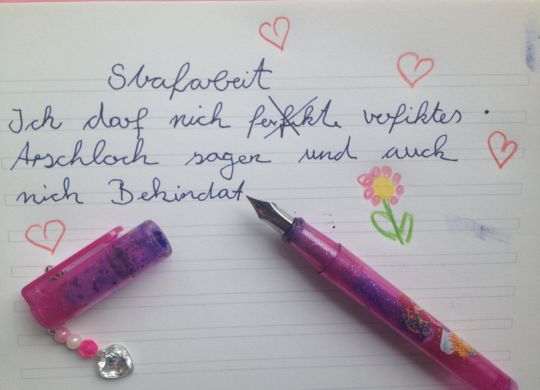 Strafarbeit
Ich darf nich ferfikte verfiktes
Arschloch sagen und auch
nich Bekindat